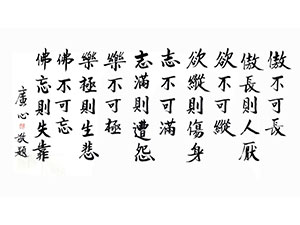 傲不可長
傲長則人厭
欲不可縱
欲縱則傷身
志不可滿
志滿則遭怨
樂不可極
樂極則生悲
佛不可忘
佛忘則失靠
廣心敬題